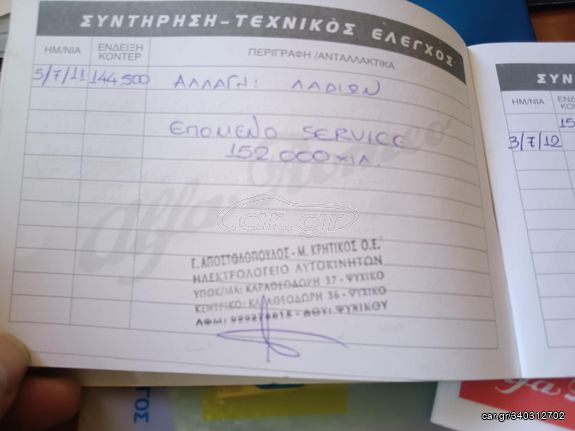 ΣΥΝΤΗΡΗΣΗ-ΤΕΧΝΙΚΟΣ ΕΛΕΓΧΟΣ
ΗΜ/ΝΙΑ ΕΝΔΕΙΞΗ ΚΟΝΤΕΡ ΠΕΡΙΓΡΑΦΗ /ΑΝΤΑΛΛΑΚΤΙΚΑ
5/7/11 144.500 ΑΛΛΑΓΗ ΛΑΔΙΩΝ
ΕΠΟΜΕΝΟ SERVICE
152.000 ΧΙΛ.
Alfa Romeo
car.gr
Γ. ΑΠΟΣΤΟΛΟΠΟΥΛΟΣ - Μ. ΚΡΗΤΙΚΟΣ Ο.Ε.
ΗΛΕΚΤΡΟΛΟΓΕΙΟ ΑΥΤΟΚΙΝΗΤΩΝ
ΥΠΟΚ/ΜΑ: ΚΑΡΑΘΕΟΔΩΡΗ 37 - ΨΥΧΙΚΟ
ΚΕΝΤΡΙΚΟ: ΚΑΡΑΘΕΟΔΩΡΗ 36 - ΨΥΧΙΚΟ
ΑΦΜ: ΔΟΥ: ΨΥΧΙΚΟΥ
ΣΥΝ
ΗΜ/ΝΙΑ
ΚΟ
15
3/7/12
ΤΟΣ
car.gr/340312702